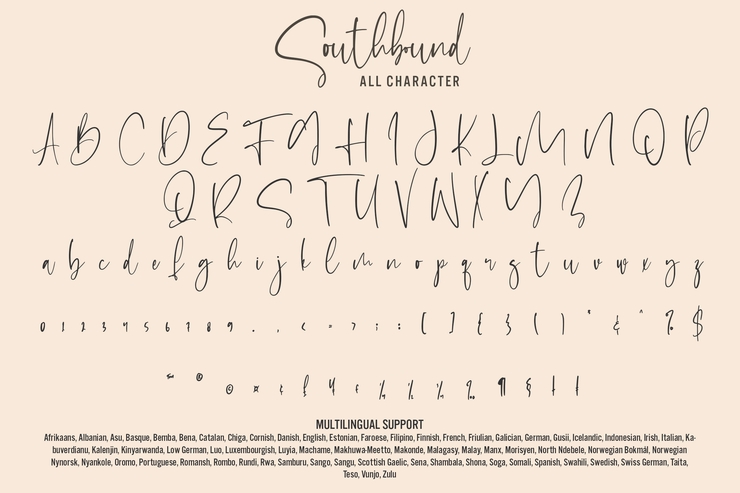 Southbound
ALL CHARACTER
A B C D E F G H I J K L M N O P
Q R S T U V W X Y Z
a b c d e f g h i j k l m n o p q r s t u v w x y z
0 1 2 3 4 5 6 7 8 9 . , < = > ; : [ ] { } ( ) * & ^ ? $
¶ §
MULTILINGUAL SUPPORT
Afrikaans, Albanian, Asu, Basque, Bemba, Bena, Catalan, Chiga, Cornish, Danish, English, Estonian, Faroese, Filipino, Finnish, French, Friulian, Galician, German, Gusii, Icelandic, Indonesian, Irish, Italian, Ka-
buverdianu, Kalenjin, Kinyarwanda, Low German, Luo, Luxembourgish, Luyia, Machame, Makhuwa-Meetto, Makonde, Malagasy, Malay, Manx, Morisyen, North Ndebele, Norwegian Bokmål, Norwegian
Nynorsk, Nyankole, Oromo, Portuguese, Romansh, Rombo, Rundi, Rwa, Samburu, Sango, Sangu, Scottish Gaelic, Sena, Shambala, Shona, Soga, Somali, Spanish, Swahili, Swedish, Swiss German, Taita,
Teso, Vunjo, Zulu